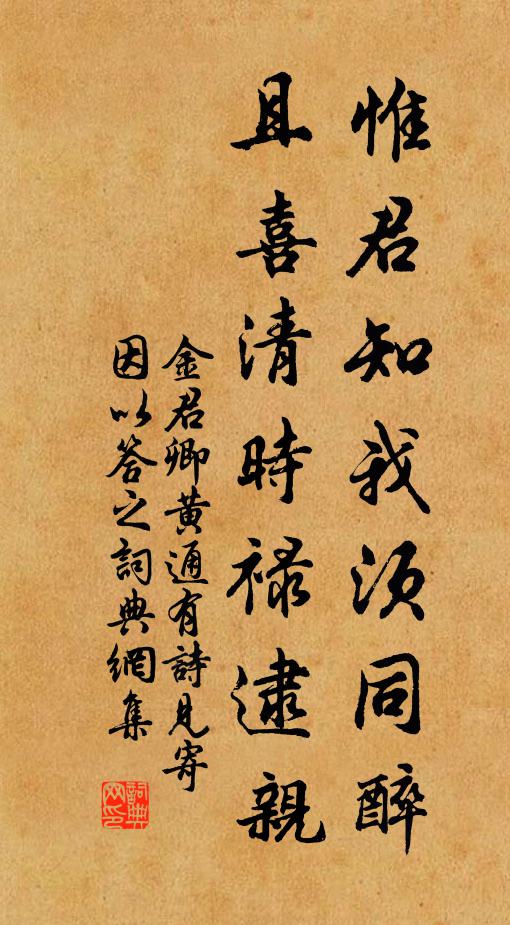 惟君知我須同醉
且喜清時禄逮親
金君卿黄通有詩見寄
因以答之詞典網集
詞典网印